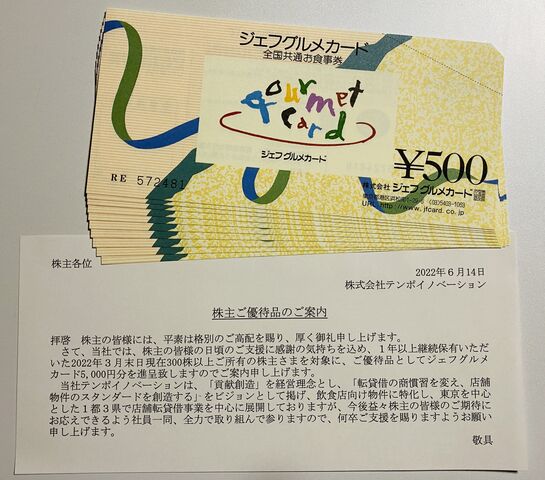 ジェフグルメカード
全国共通お食事券
gourmet
card
ジェフグルメカード
¥500
RE 572481
株式会社 ジェフグルメカード
URL http://www.jfcard.co.jp
株主各位
2022年6月14日
株式会社テンポイノベーション
株主ご優待品のご案内
拝啓 株主の皆様には、平素は格別のご高配を賜り、厚く御礼申し上げます。
さて、当社では、株主の皆様の日頃のご支援に感謝の気持ちを込め、1年以上継続保有いただ
いた2022年3月末日現在300株以上ご所有の株主さまを対象に、ご優待品としてジェフグルメ
カード5,000円分を進呈致しますのでご案内申し上げます。
当社テンポイノベーションは、「貢献創造」を経営理念とし、「転貸借の商慣習を変え、店舗
物件のスタンダードを創造する」をビジョンとして掲げ、飲食店向け物件に特化し、東京を中心
とした1都3県で店舗転貸借事業を中心に展開しておりますが、今後益々株主の皆様のご期待に
お応えできるよう社員一同、全力で取り組んで参りますので、何卒ご支援を賜りますようお願い
申し上げます。
敬具